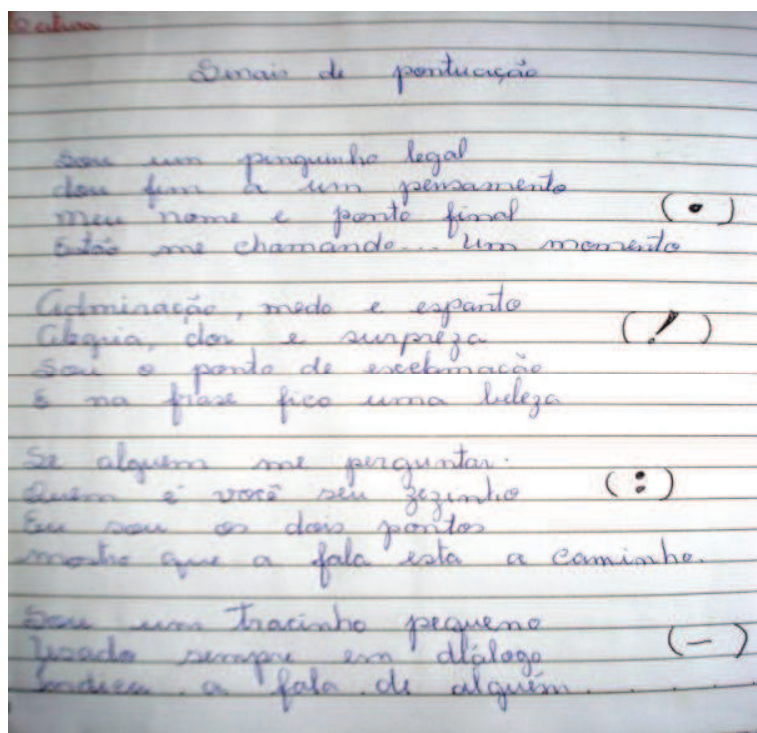 Leitura
Sinais de pontuação
Sou um pinguinho legal
dou fim a um pensamento
meu nome e ponto final (.)
Estão me chamando... Um momento
Admiração, medo e espanto
Alegria, dor e surpreza (!)
Sou o ponto de exclamação
E na frase fico uma beleza
Se alguém me perguntar.
Quem é você seu zezinho (:)
Eu sou os dois pontos
mostro que a fala esta a caminho.
Sou um tracinho pequeno
Usado sempre em diálogo (—)
Indico a fala de alguém